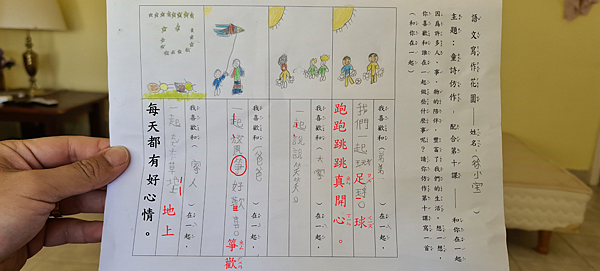 語文寫作花園——姓名(
主題:童詩仿作——配合第十課——和你在一起
因為許多人、事、物的陪伴,豐富了我們的生活。想一想,
你喜歡和誰在一起做些什麼事呢?請你仿作第十課,寫一首
(和你在一起)
我喜歡和(弟弟)在一起,
我們一起玩足球 球
跑跑跳跳真開心。
我喜歡和(大家)在一起,
一起說說笑笑
我喜歡和(爸爸)在一起,
一起放風箏好歡喜。箏歡
我喜歡和(家人)在一起,
一起去草地上 地上
每天都有好心情。